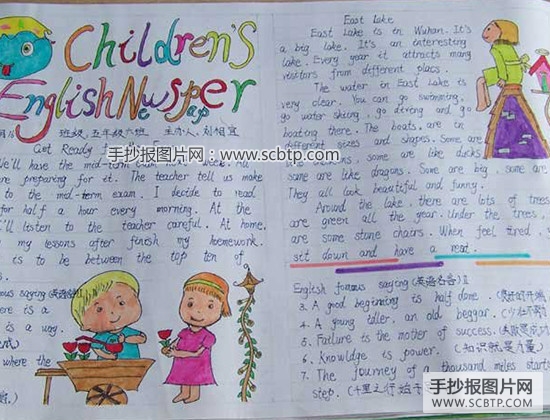 Children's
English Newspaper
班级：五年级六班 主办人：刘相宜
Get Ready
We'll have the mid-term
are preparing for it. The teacher tell us make
to the mid-term exam. I decide to read
for half a hour every morning. At the
I'll listen to the teacher careful. At home,
my lessons after finish my homework.
is to be between the top ten of
saying (英语名言) I
there is a
is a way.
where the
East Lake
East Lake is in Wuhan. It's
a big lake. It's an interesting
lake. Every year it attracts many
visitors from different placs.
The water in East Lake is
very clear. You can go swimming,
go water skiing, go diving and go
boating there. The boats are in
different sizes and shapes. Some are
some are like ducks
some are like dragons. Some are big, some are
They all look beautiful and funny.
Around the lake, there are lots of trees
are green all the year. Under the trees,
are some stone chairs. When feel tired, y
sit down and have a rest.
English famous saying (英语名言) II
3. A good beginning is half done. (良好的开端
4. A young idler, an old beggar. (少壮不努
5. Failure is the mother of success. (失败是成功
6. Knowldge is power. (知识就是力量)
7. The journey of a thousand miles starts
step. (千里之行始于
手抄报图片网：www.scbtp.com
手抄报图片网
WWW.SCBTP.COM